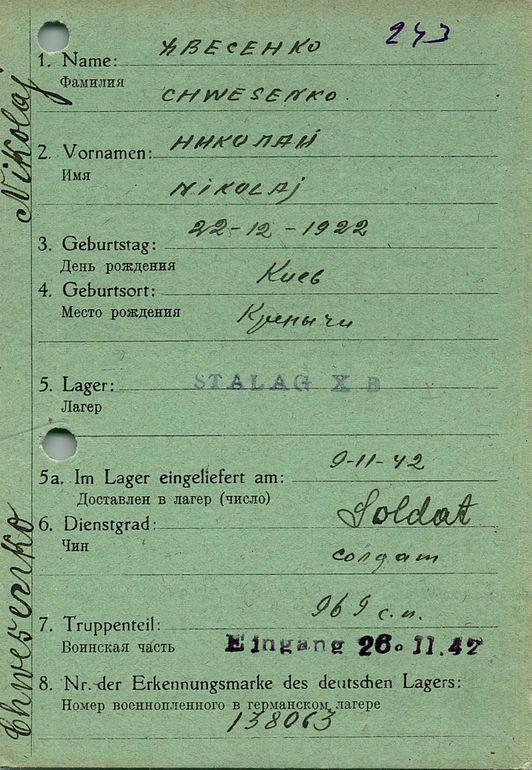 243
1. Name: ХВЕСЕНКО
Фамилия
CHWESENKO.
2. Vornamen: НИКОЛАЙ
Имя
NIKOLAJ
3. Geburtstag: 22-12-1922
День рождения
Киев
4. Geburtsort:
Место рождения
5. Lager: STALAG X B
Лагер
5a. Im Lager eingeliefert am: 9-11-42
Доставлен в лагер (число)
6. Dienstgrad: Soldat
Чин
солдат
7. Truppenteil: 969 с.п.
Воинская часть
Eingang 26. 11. 42
8. Nr. der Erkennungsmarke des deutschen Lagers:
Номер военнопленного в германском лагере
138063
Chwesenko Nikolaj